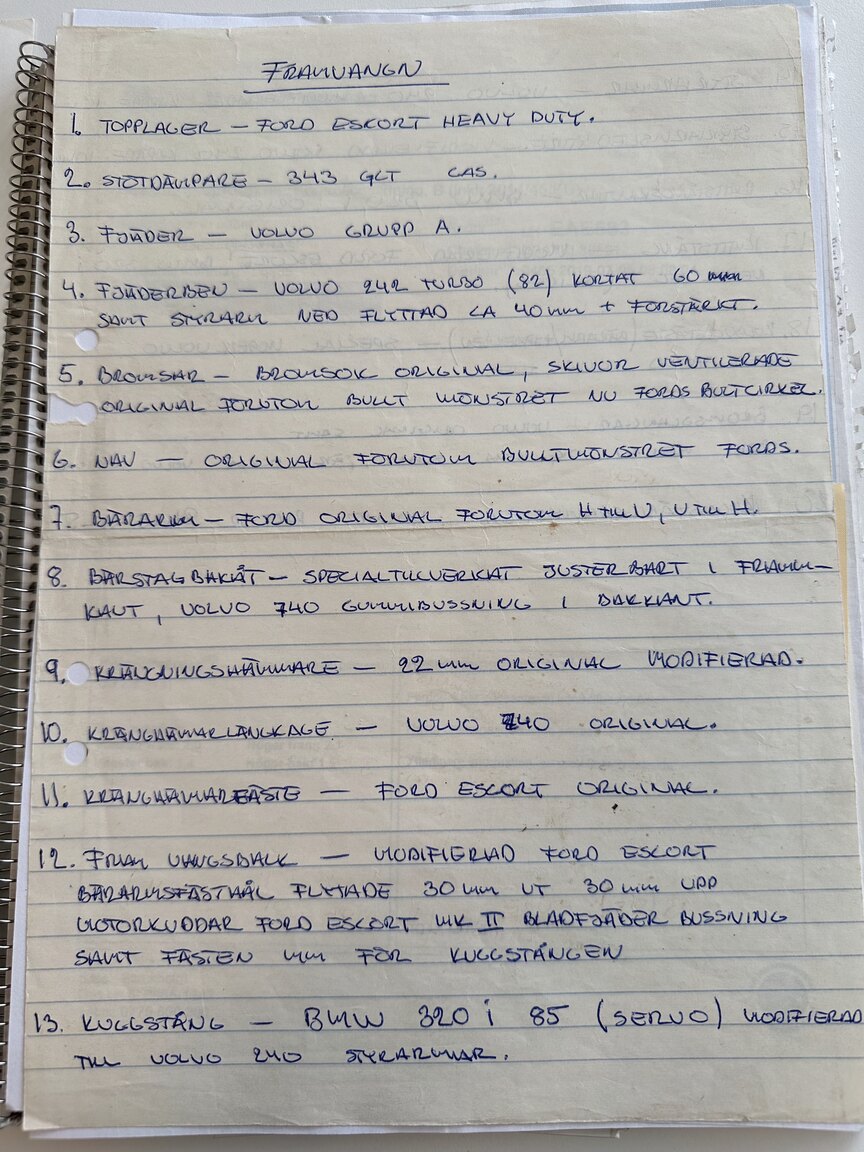 FRAMVANGN
1. TOPPLAGER – FORD ESCORT HEAVY DUTY.
2. STÖTDÄMPARE – 343 GLT GAS.
3. FJÄDER – VOLVO GRUPP A.
4. FJÄDERBEN – VOLVO 242 TURBO (82) KORTAT 60 mm
SAMT STYRARM NED FLYTTAD CA 40 mm + FÖRSTÄRKT.
5. BROMSAR – BROMSOK ORIGINAL, SKIVOR VENTILERADE
ORIGINAL FÖRUTOM BULLT MÖNSTRET NU FORDS BULTCIRKEL.
6. NAV – ORIGINAL FÖRUTOM BULLTMÖNSTRET FORDS.
7. BÄRARM – FORD ORIGINAL FÖRUTOM H TILL V, V TILL H.
8. BÄRSTAG BAKÅT – SPECIALTILLVERKAT JUSTERBART I FRAMM–
KANT, VOLVO 740 GUMMIBUSSNING I BAKKANT.
9. KRÄNGNINGSHÄMMARE – 22 mm ORIGINAL MODIFIERAD.
10. KRÄNGHÄMARLÄNCKAGE – VOLVO 240 ORIGINAL.
11. KRÄNGHÄMMAREFÄSTE – FORD ESCORT ORIGINAL.
12. FRAM VANGSBALK – MODIFIERAD FORD ESCORT
BÄRARMSFÄSTHÅL FLYTADE 30 mm UT 30 mm UPP
MOTORKUDDAR FORD ESCORT MK II BLADFJÄDER BUSSNING
SAMT FÄSTEN MM FÖR KUGGSTÅNGEN
13. KUGGSTÅNG – BMW 320 i 85 (SERVO) MODIFIERAD
TILL VOLVO 240 STYRARMAR.